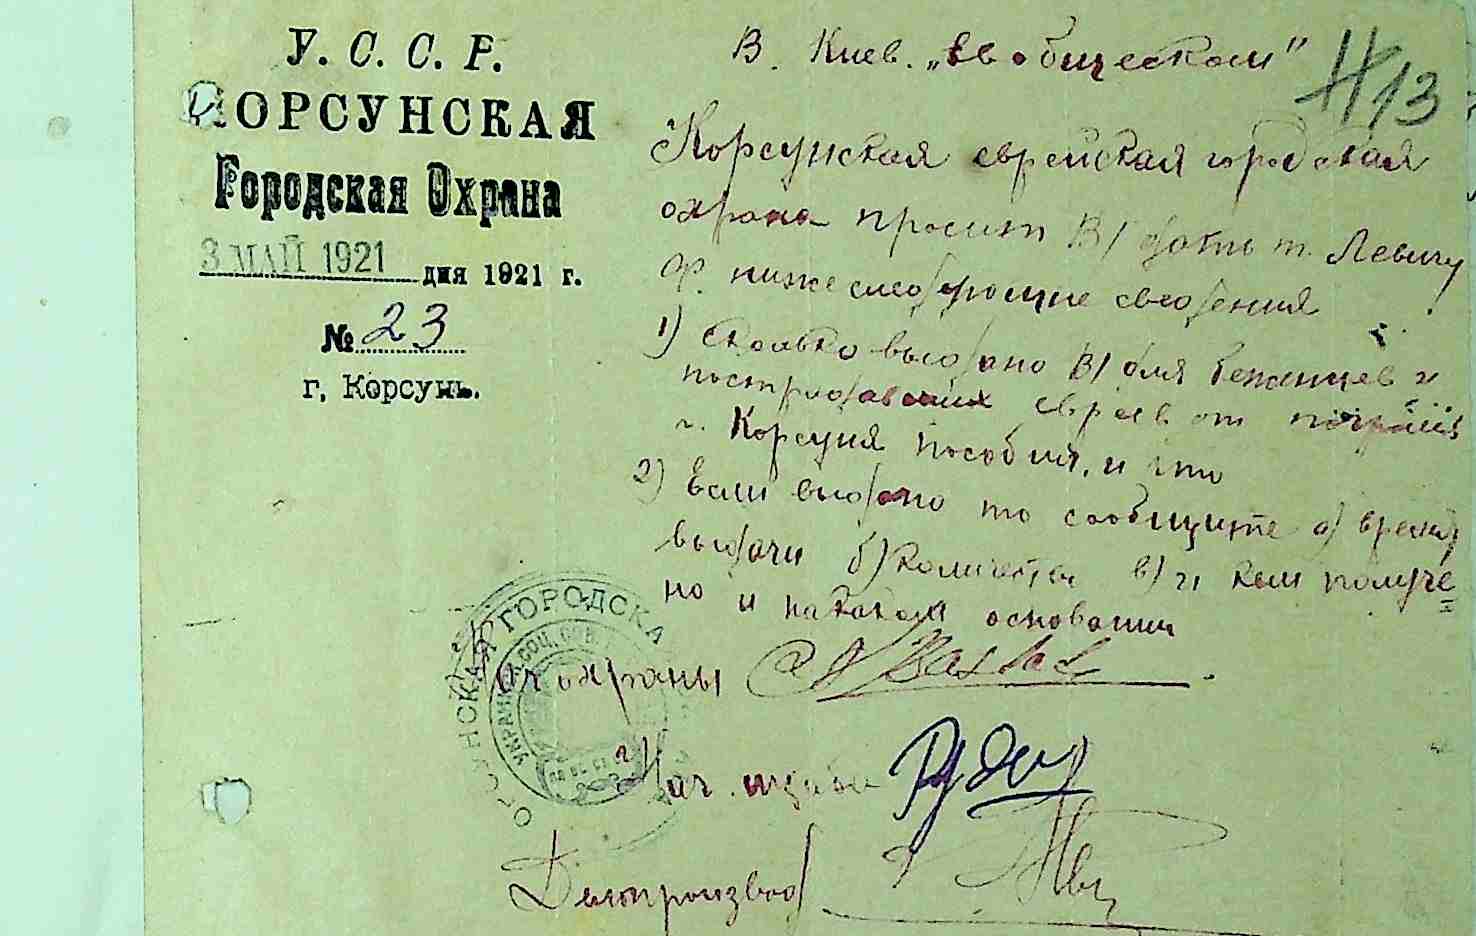 У. С. С. Р.
КОРСУНСКАЯ
Городская Охрана
3 МАЙ 1921 дня 1921 г.
№ 23
г. Корсунь.
В. Киев. „Евобщеском"
413
Корсунская еврейская городская
охрана просит В/ дать т. Левичу
Ф. нижеследующие сведения
1) сколько выдано В/ для беженцев и
пострадавших евреев от
г. Корсуня пособий, и что
2) Если выдано то сообщите а) время
выдачи б) количество в) и кем получе
но и на каком основании
Нач охраны
Нач. штаба
Делопроизвод
ОРСУНСКАЯ ГОРОДСКА
УКРАИНСК. СОЦ. СОВ.